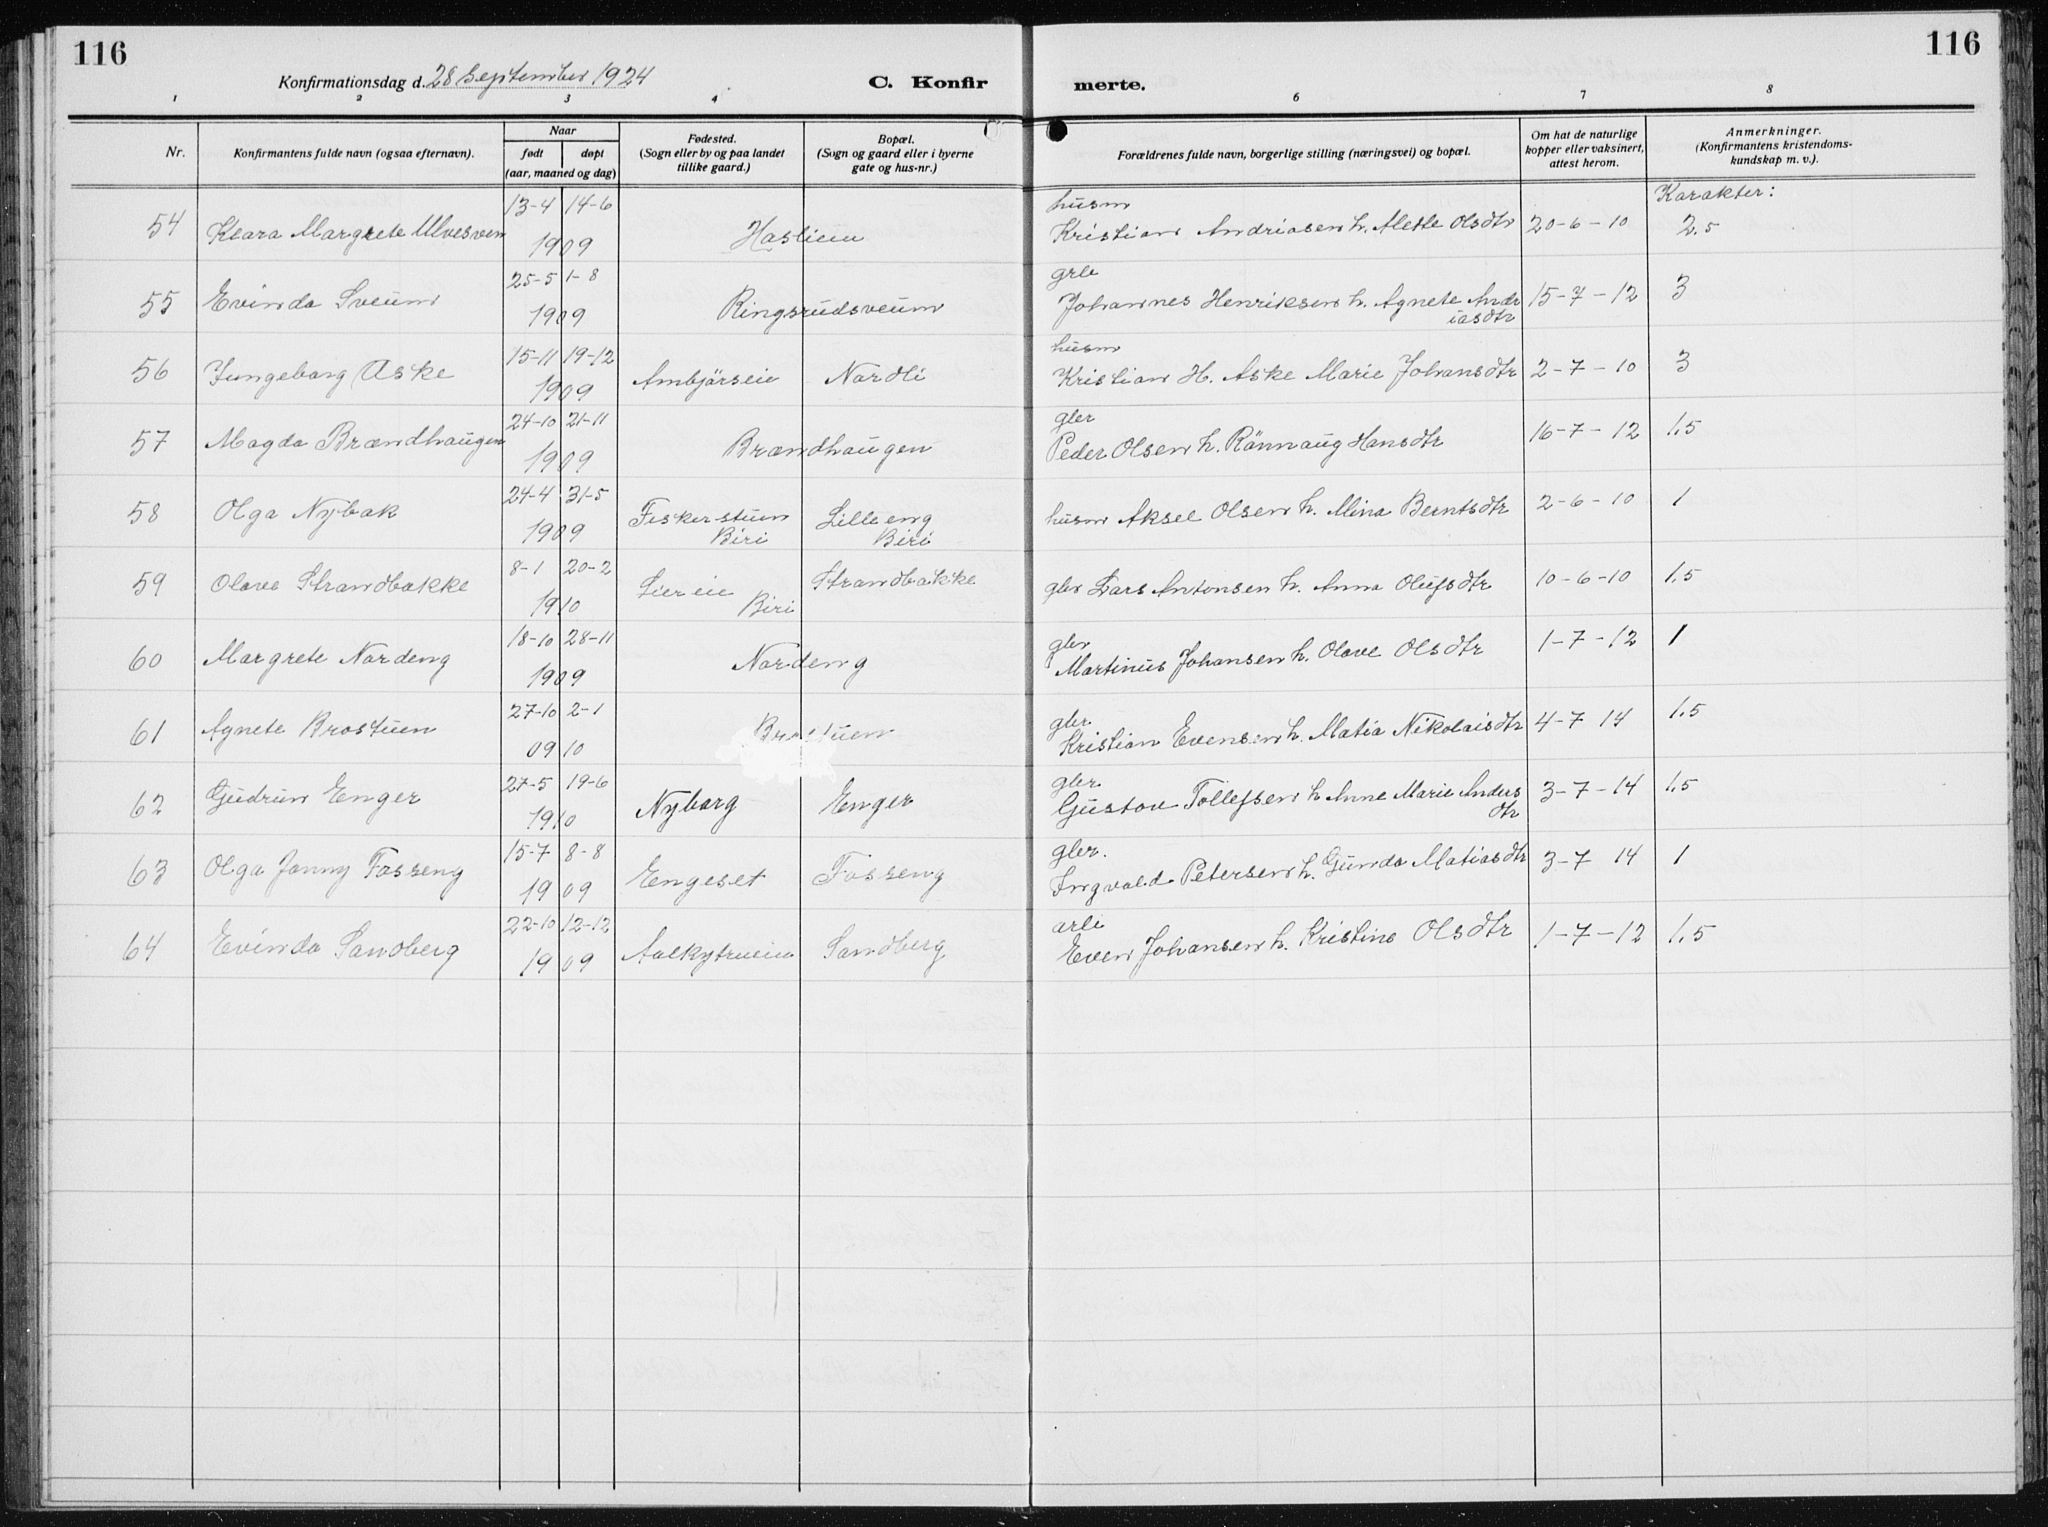 116
116
Konfirmationsdag d. 28 September 1924
C. Konfirmerte.
1 2 3 4 6 7 8
Nr.
Konfirmantens fulde navn (ogsaa efternavn).
Naar
født døpt
(aar, maaned og dag)
Fødested.
(Sogn eller by og paa landet
tillike gaard.)
Bopæl.
(Sogn og gaard eller i byerne
gate og hus-nr.)
Forældrenes fulde navn, borgerlige stilling (næringsvei) og bopæl.
Om hat de naturlige
kopper eller vaksinert,
attest herom.
Anmerkninger.
(Konfirmantens kristendoms-
kundskap m. v.).
13-4 14-6 husm Karakter:
54 Klara Margrete Ulvesven 1909 Haslien Kristian Andriasen h. Alette Olsdtr 20-6-10 2.5
25-5 1-8 grle
55 Evinda Sveum 1909 Ringsrudsveum Johannes Henriksen h. Agnete Andr 15-7-12 3
iasdtr
15-11 19-12 husm
56 Jungeborg Aske 1909 Ambjörseie Nordli Kristian H. Aske Marie Johansdtr 2-7-10 3
24-10 21-11 gler
57 Magda Brændhaugen 1909 Brændhaugen Peder Olsen h. Rönnaug Hansdtr 16-7-12 1.5
24-4 31-5
58 Olga Nybak 1909 Fiskerstuen Lilleeng husm Aksel Olsen h. Mina Berntsdtr 2-6-10 1
Biri Biri
8-1 20-2
59 Olave Strandbakke 1910 Liereie Strandbakke gler Lars Antonsen h. Anna Olufsdtr 10-6-10 1.5
Biri
18-10 28-11 gler
60 Margrete Nordeng 1909 Nordeng Martinus Johansen h. Olave Olsdtr 1-7-12 1
27-10 2-1 gler
61 Agnete Brostuen 09 10 Brostuen Kristian Evensen h. Matia Nikolaisdtr 4-7 14 1.5
27-5 19-6 gler
62 Gudrun Enger 1910 Nyborg Enger Gustav Tollefsen h Anne Marie Anders 3-7-14 1.5
dtr
15-7 8-8 gler.
63 Olga Jonny Fosseng 1909 Engeset Fosseng Ingvald Petersen h. Gunda Matiasdtr 3-7 14 1
22-10 12-12 arli
64 Evinda Sandberg 1909 Sandberg Even Johansen h. Kristine Olsdtr 1-7-12 1.5